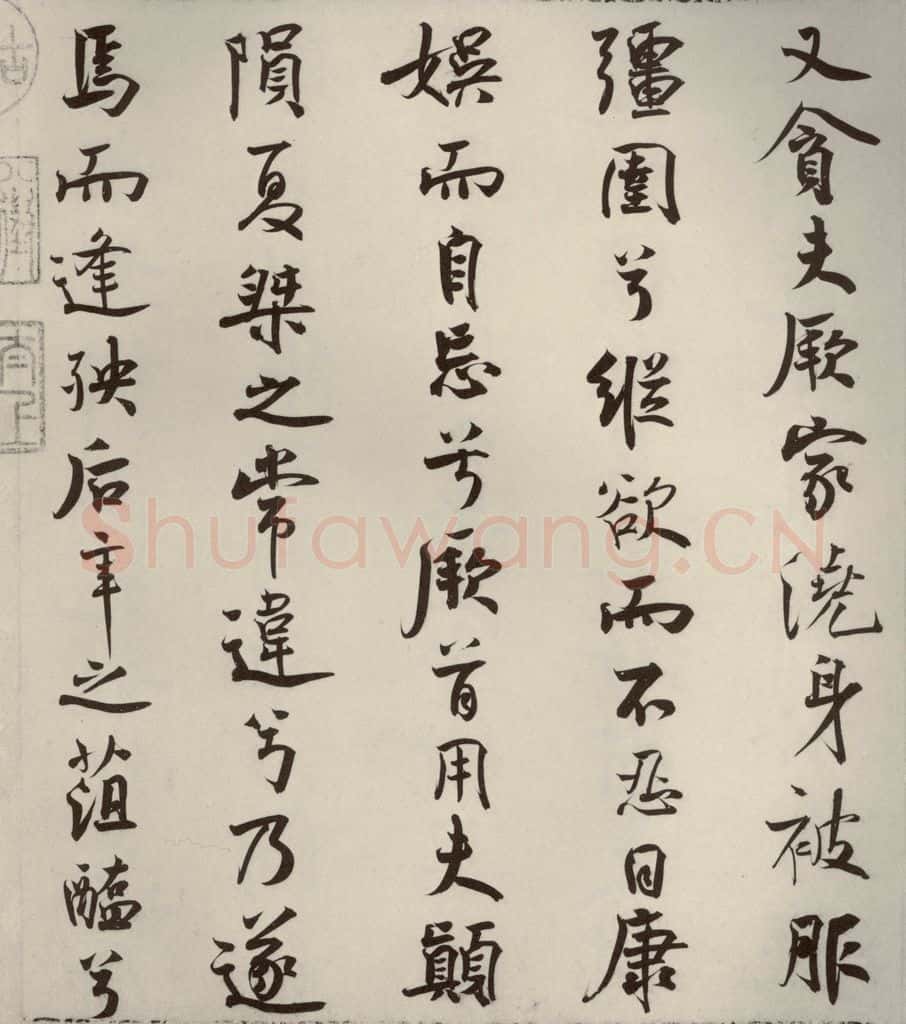 又貪夫厥家澆身被服
彊圉兮縱欲而不忍日康
娛而自忘兮厥首用夫顛
隕夏桀之常違兮乃遂
焉而逢殃后辛之菹醢兮
Shufawang.CN